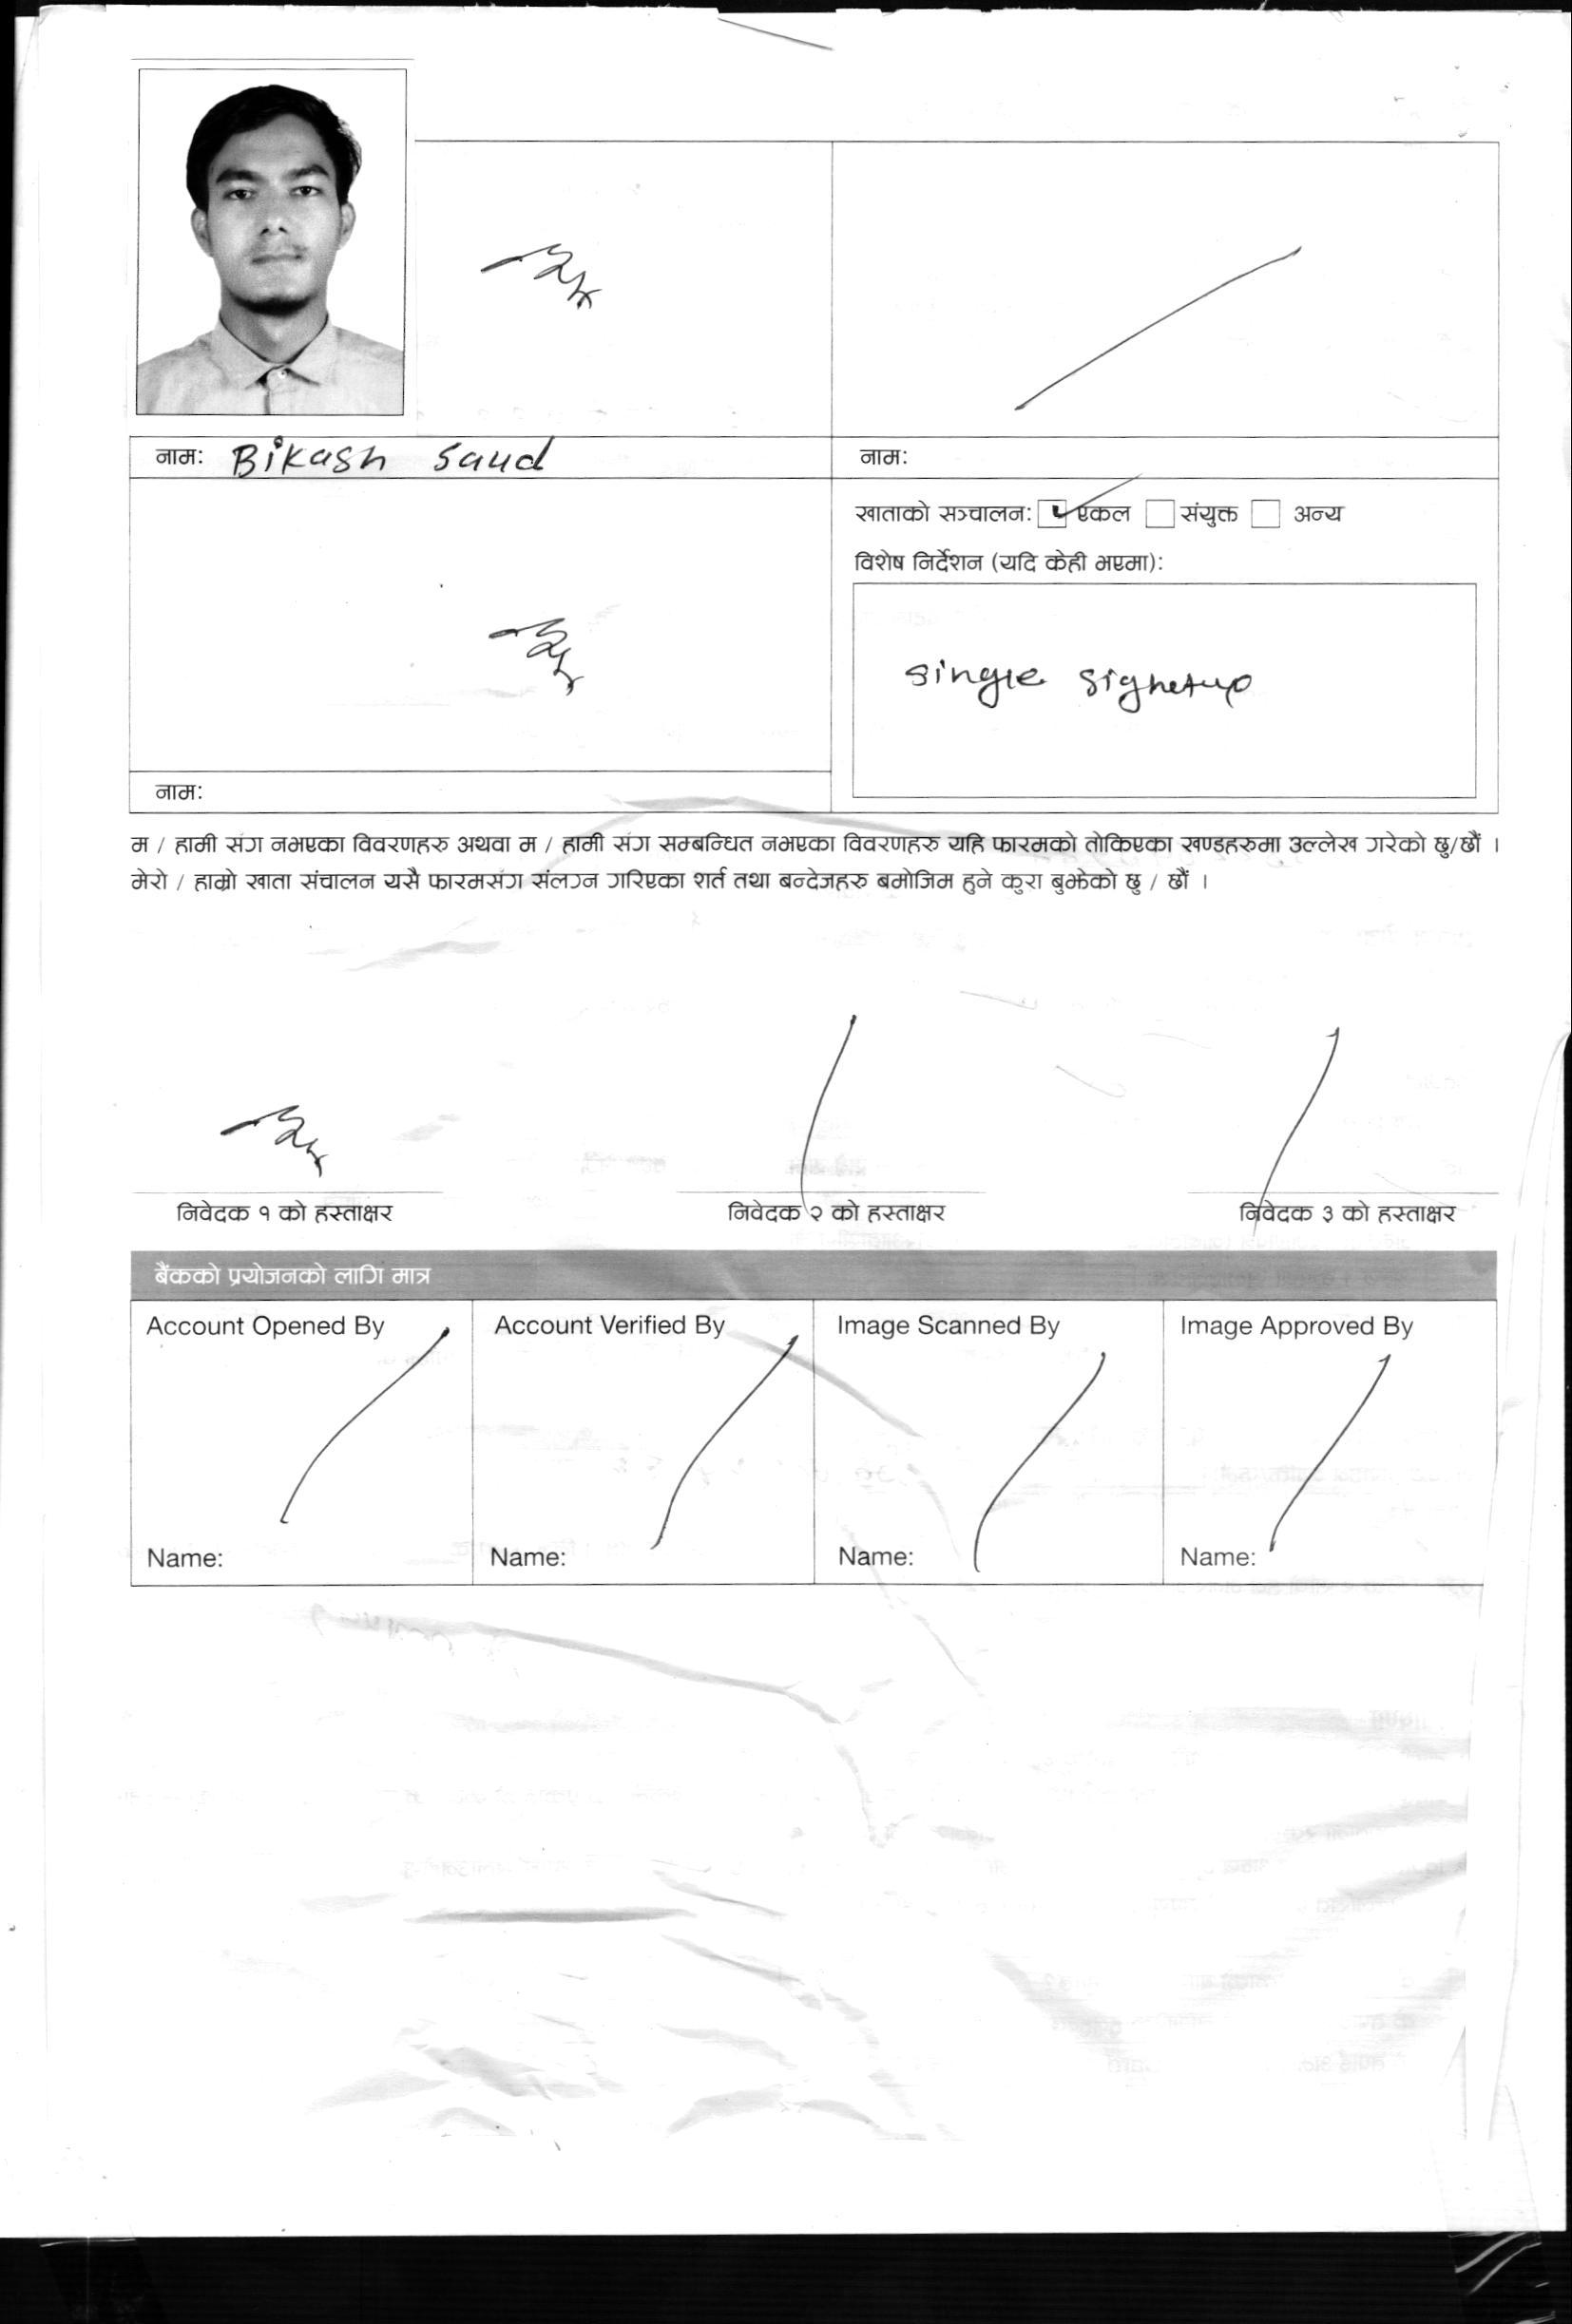 नाम: Bikash Saud
नाम:
खाताको सञ्चालन: एकल संयुक्त अन्य
विशेष निर्देशन (यदि केही भएमा):
single
नाम:
म / हामी संग नभएका विवरणहरु अथवा म / हामी संग सम्बन्धित नभएका विवरणहरु यहि फारमको तोकिएका खण्डहरुमा उल्लेख गरेको छु/छौं ।
मेरो / हाम्रो खाता संचालन यसै फारमसंग संलग्न गरिएका शर्त तथा बन्देजहरु बमोजिम हुने कुरा बुझेको छु / छौं ।
निवेदक १ को हस्ताक्षर
निवेदक २ को हस्ताक्षर
निवेदक ३ को हस्ताक्षर
बैंकको प्रयोजनको लागि मात्र
Account Opened By
Account Verified By
Image Scanned By
Image Approved By
Name:
Name:
Name:
Name: